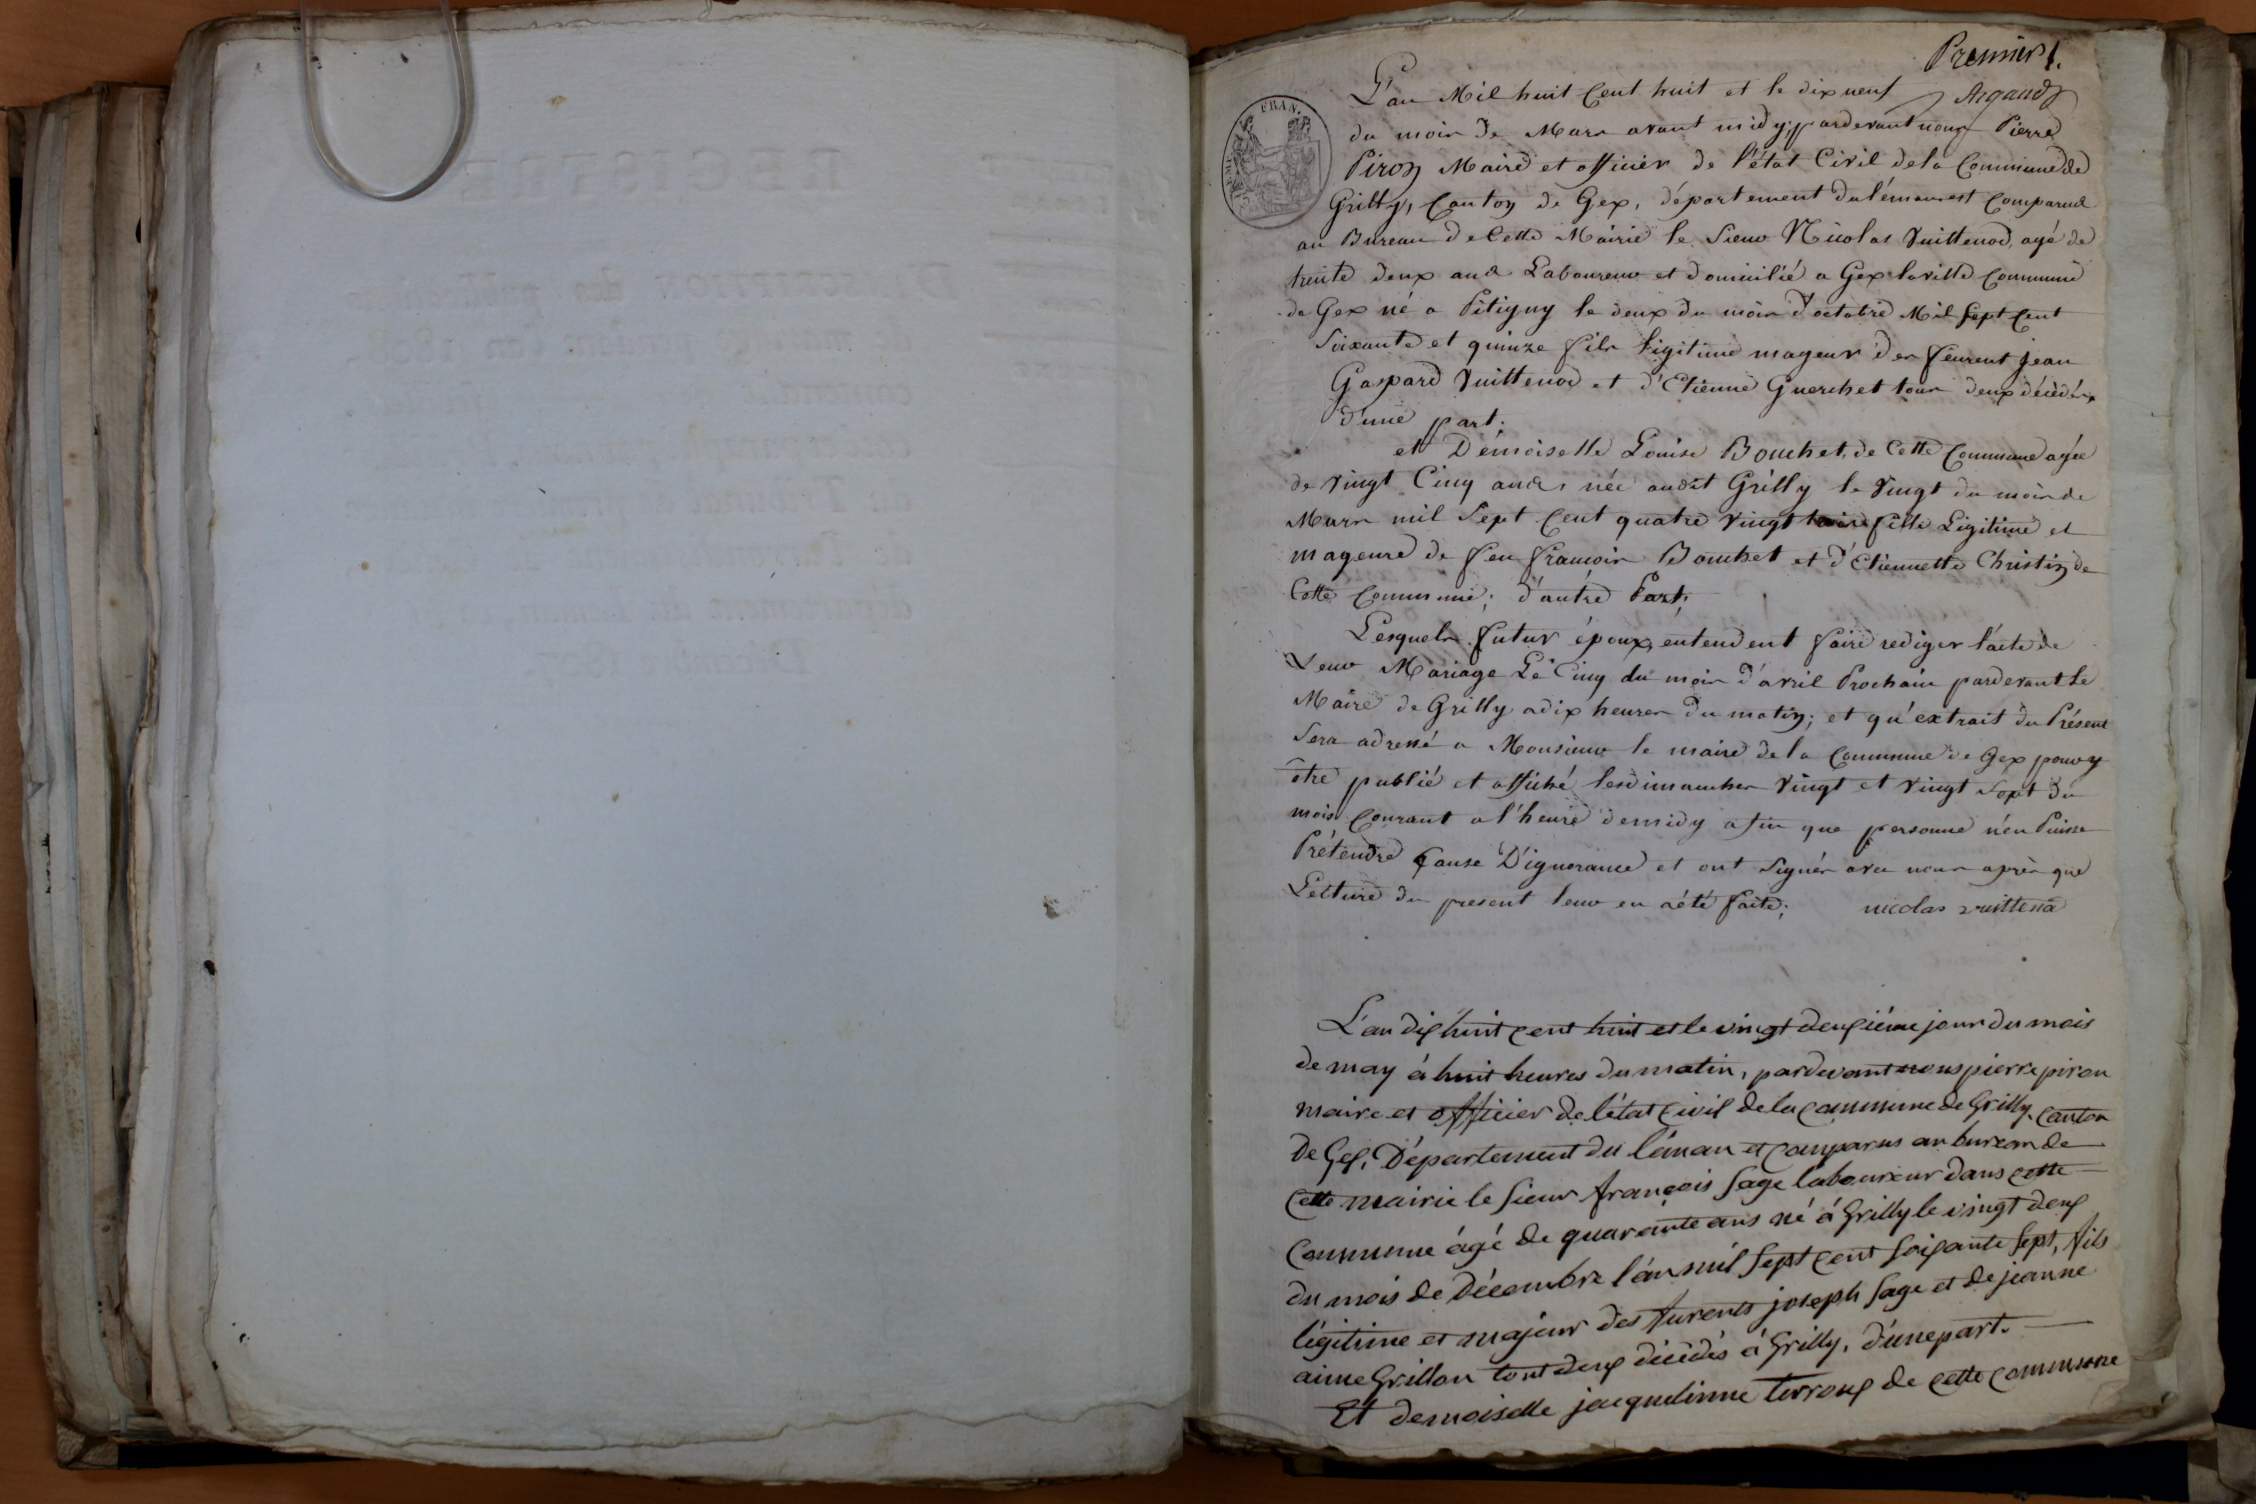 Premier 1.
Argaud
FRAN.
L'an Mil huit Cent huit et le dix neuf
du mois de Mars avant midy; pardevant nous Pierre
Piron Maire et officier de l'état Civil de la Commune de
Grilly, Canton de Gex, département du léman est Comparu
au Bureau de Cette Mairie le Sieur Nicolas Vuittenod, agé de
trente deux ans Laboureur et domicilié a Gex laville Commune
de Gex né a Pitigny le deux du mois d'octobre Mil Sept Cent
Soixante et quinze fils légitime mageur des feurent jean
Gaspard Vuittenod et d'Etienne Guerchet tous deux décédés
d'une part;
et Démoiselle Louise Bouchet, de Cette Commune agée
de Vingt Cinq ans, née audit Grilly le Vingt du mois de
Mars mil Sept Cent quatre Vingt trois fille Légitime et
mageure de feu francois Bouchet et d'Etiennette Christin de
Cette Commune; d'autre Part;
Lesquels futur époux, entendent faire rediger l'acte de
Leur Mariage Le Cinq du mois d'avril Prochain pardevant Le
Maire de Grilly a dix heures du matin; et qu'extrait du Présent
Sera adressé a Monsieur le maire de la Commune de Gex pour y
être publié et affiché les dimanches Vingt et Vingt Sept du
mois Courant a l'heure de midy afin que personne n'en Puisse
Prétendre Cause D'ignorance et ont Signés avec nous après que
Lecture du present leur en a été faite; nicolas vuittenod
L'an dix huit cent huit et le vingt deuxième jour du mois
de may à huit heures du matin, pardevant nous pierre piron
maire et officier de l'état civil de la commune de Grilly, Canton
de Gex, Département du léman et comparus au bureau de
Cette mairie le Sieur françois Sage laboureur dans cette
Commune âgé de quarante ans né à Grilly le vingt deux
du mois de Décembre l'an mil Sept cent Soixante Sept, fils
légitime et majeur des furents joseph Sage et de jeanne
aime Grillon tout deux décédés à Grilly, d'une part.
Et demoiselle jacquelinne terroux de cette commune